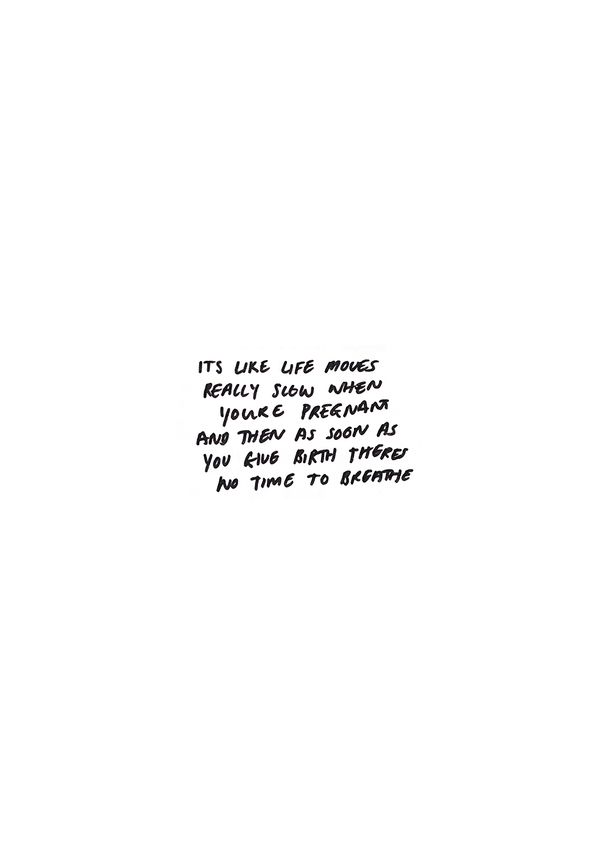 ITS LIKE LIFE MOVES
REALLY SLOW WHEN
YOURE PREGNANT
AND THEN AS SOON AS
YOU GIVE BIRTH THERES
NO TIME TO BREATHE